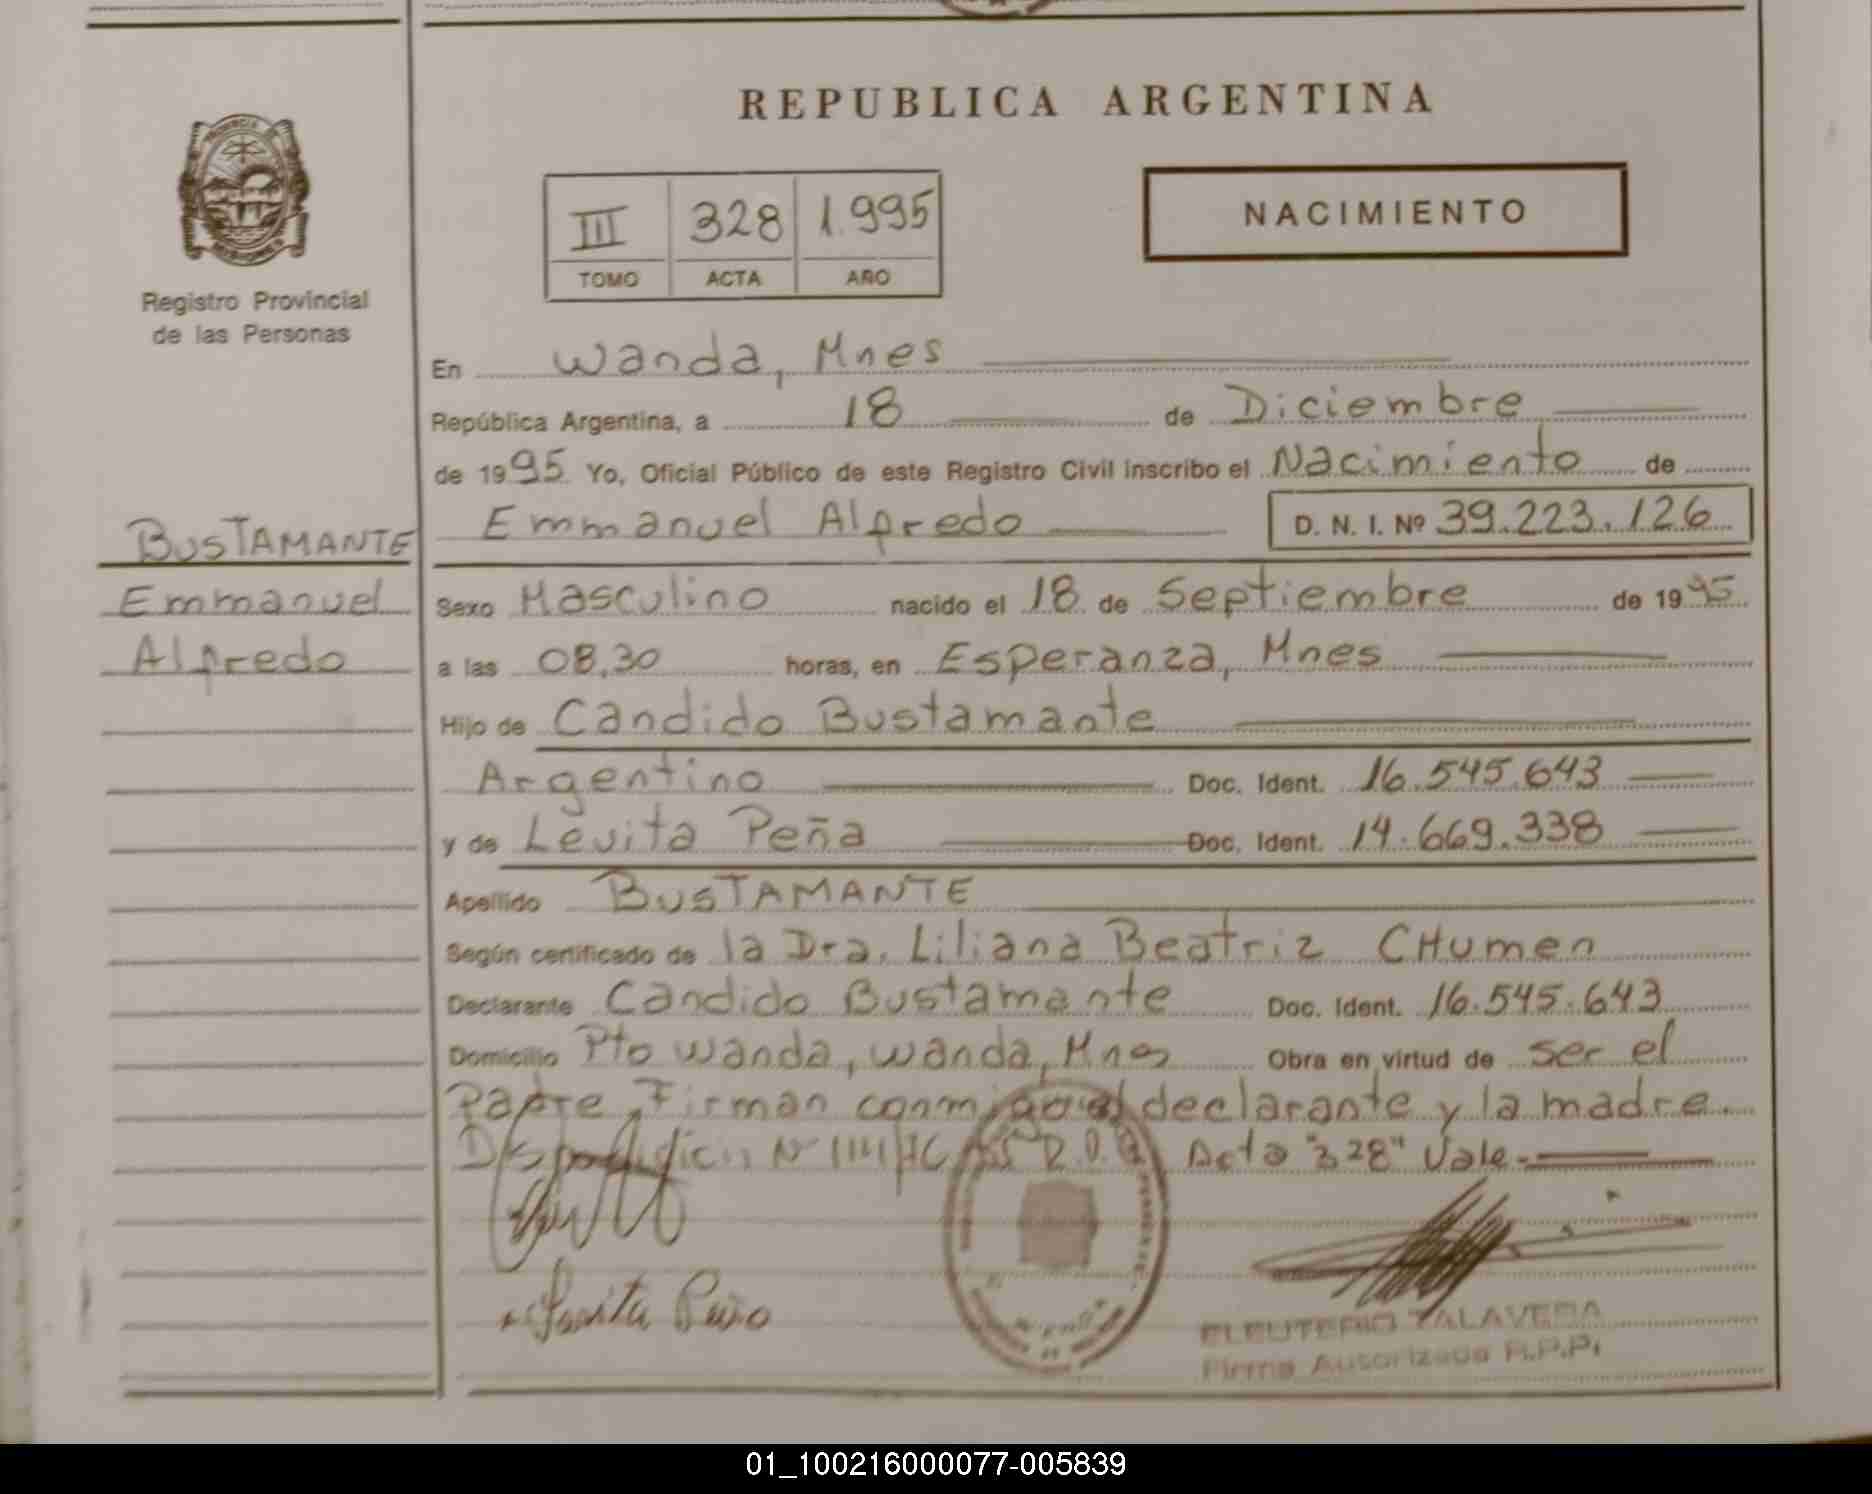 REPUBLICA ARGENTINA
III 328 1.995
TOMO ACTA AÑO
NACIMIENTO
Registro Provincial
de las Personas
En Wanda, Mnes
República Argentina, a 18 de Diciembre
de 1995 Yo, Oficial Público de este Registro Civil inscribo el Nacimiento de
Emmanuel Alfredo D. N. I. Nº 39.223.126
BUSTAMANTE
Emmanuel
Alfredo
Sexo Masculino nacido el 18 de Septiembre de 1995
a las 08,30 horas, en Esperanza, Mnes
Hijo de Candido Bustamante
Argentino Doc. Ident. 16.545.643
y de Levita Peña Doc. Ident. 14.669.338
Apellido BUSTAMANTE
Según certificado de la Dra. Liliana Beatriz CHumen
Declarante Candido Bustamante Doc. Ident. 16.545.643
Domicilio Pto Wanda, Wanda, Mnes Obra en virtud de ser el
Padre, Firman conmigo el declarante y la madre.
Disposición Nº Acta "328" Vale
Levita
ELEUTERIO TALAVERA
Firma Autorizada R.P.P.
01_100216000077-005839